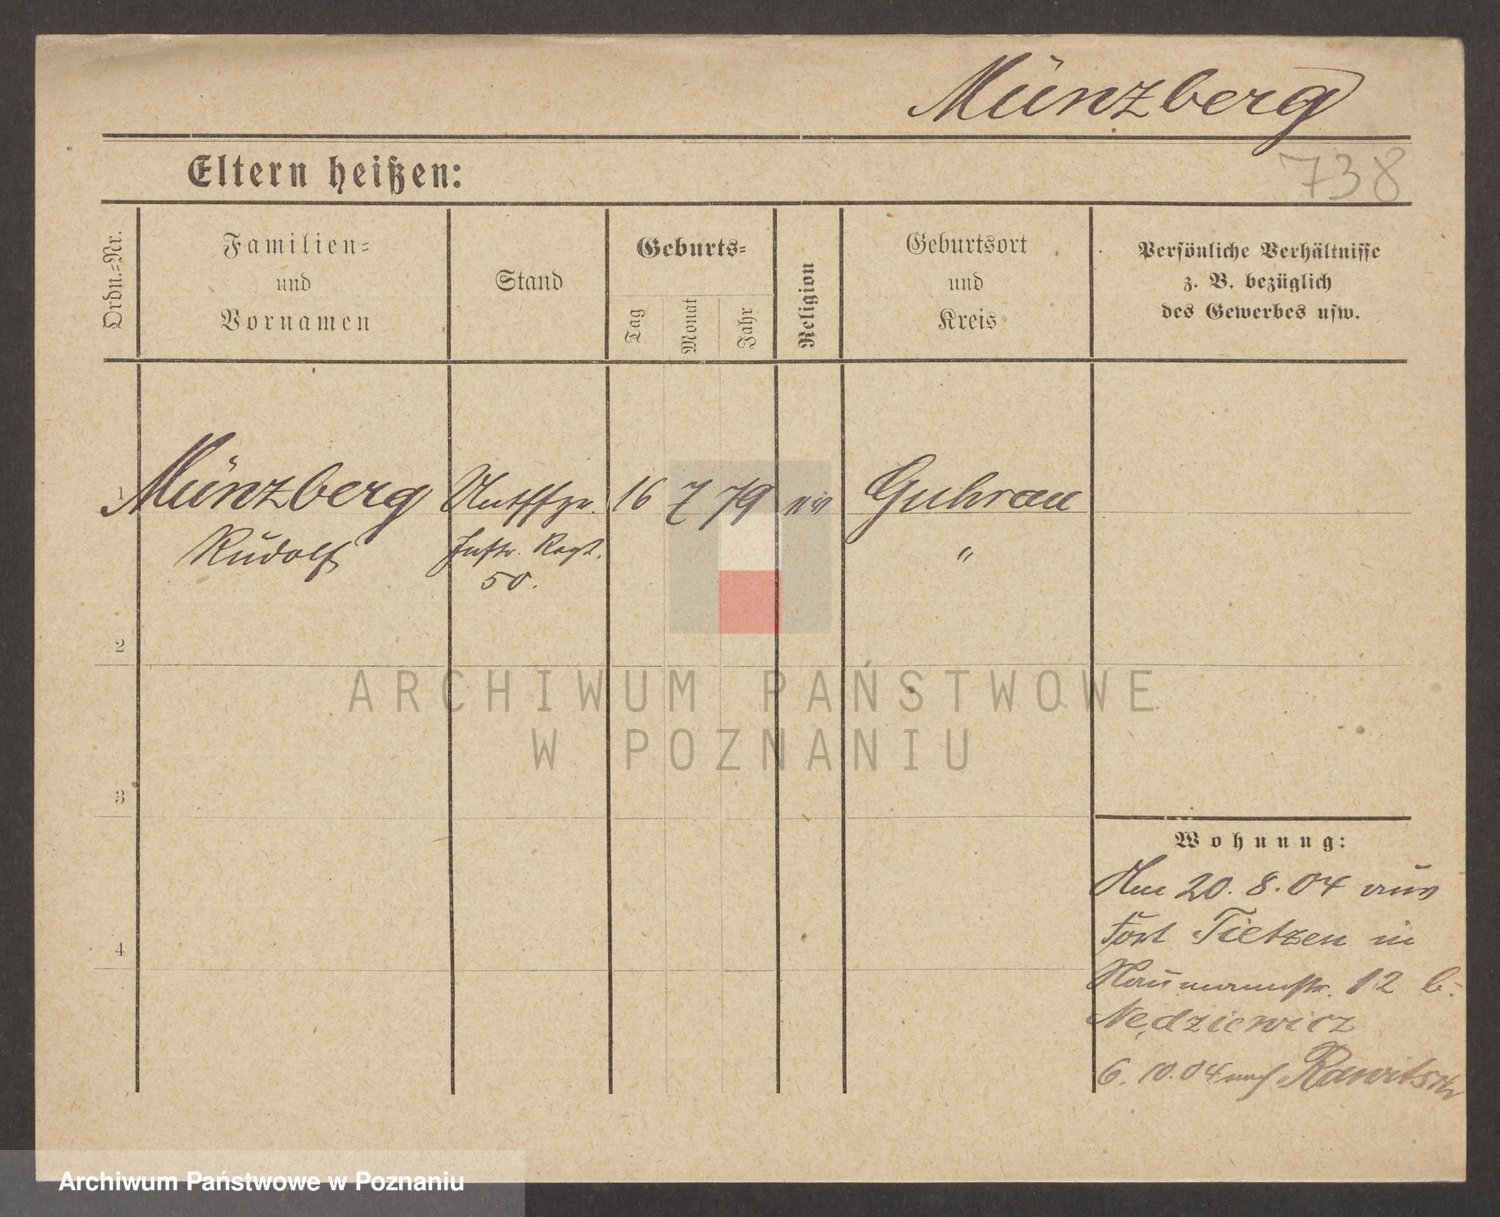 Münzberg
738
Eltern heißen:
Ordn.=Nr.
Familien=
und
Vornamen
Stand
Geburts=
Tag
Monat
Jahr
Religion
Geburtsort
und
Kreis
Persönliche Verhältnisse
z. B. bezüglich
des Gewerbes usw.
1 Münzberg 16 7 79 Guhrau
Rudolf Inftr. Regt. "
50.
2
3
4
Wohnung:
Am 20. 8. 04 aus
Fort Tietzen in
Naumannstr. 12 b.
Nędziewicz
6. 10. 04 nach Rawitsch
ARCHIWUM PAŃSTWOWE
W POZNANIU
Archiwum Państwowe w Poznaniu